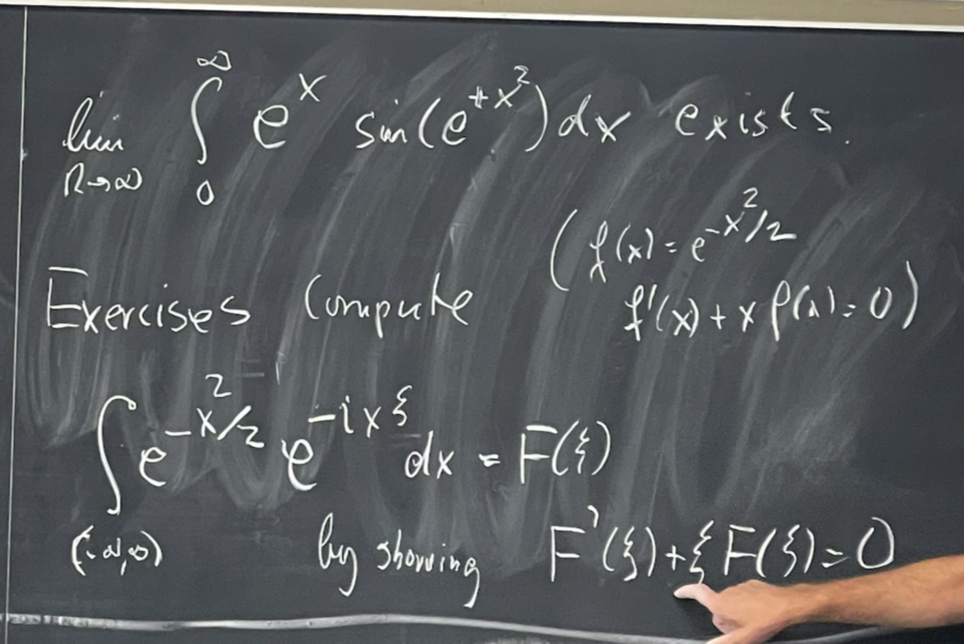 lim_{R→∞} ∫_0^∞ e^x sin(e^{+x^2}) dx exists.
(f(x) = e^{-x^2/2}
Exercises Compute f'(x) + x f(x) = 0)
∫_{(-∞,∞)} e^{-x^2/2} e^{-ixξ} dx = F(ξ)
by showing F'(ξ) + ξ F(ξ) = 0